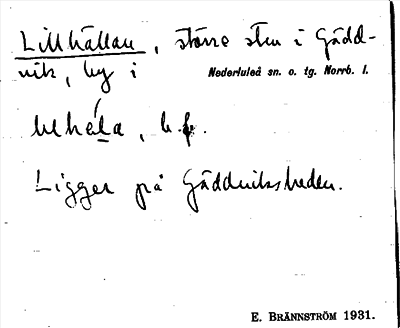 Lillhällan, större sten i Gädd-
vik, by i Nederluleå sn. o. tg. Norrb. l.
b. f.
Ligger på Gäddviksheden.
E. BRÄNNSTRÖM 1931.